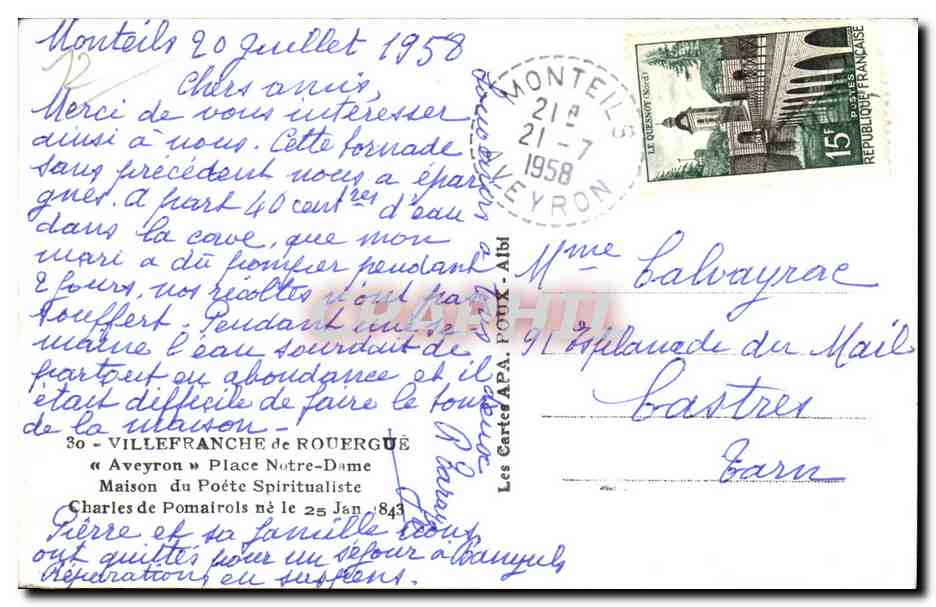 Monteils 20 Juillet 1958
Chers amis,
Merci de vous intéresser
ainsi à nous. Cette tornade
sans précédent nous a épar
gnés. A part 40 centres d'eau
dans la cave, que mon
mari a dû pomper pendant
2 jours, nos récoltes n'ont pas
souffert. Pendant une se
maine l'eau sourdait de
partout en abondance et il
était difficile de faire le tour
de la maison -
30 - VILLEFRANCHE de ROUERGUE
« Aveyron » Place Notre-Dame
Maison du Poéte Spiritualiste
Charles de Pomairols né le 25 Jan 1843
Pierre et sa famille nous
ont quittés pour un séjour à Banyuls
Réparations en suspens.
à tous deux
Les Cartes APA. POUX - Albi
MONTEILS
21 H
21 - 7
1958
AVEYRON
LE QUESNOY (Nord)
15F
POSTES
RÉPUBLIQUE FRANÇAISE
Mme Calvayrac
91 Esplanade du Mail
Castres
Tarn